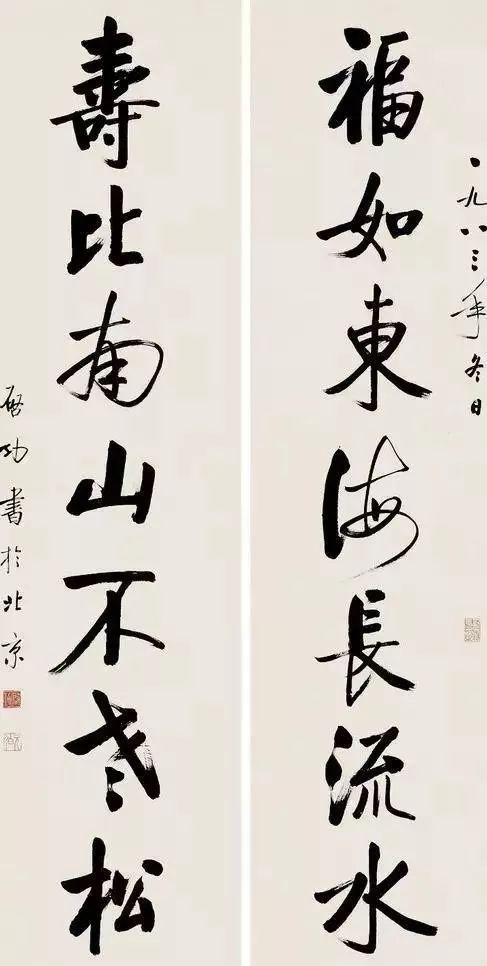 一九八三年冬日
福如東海長流水
壽比南山不老松
啓功書於北京